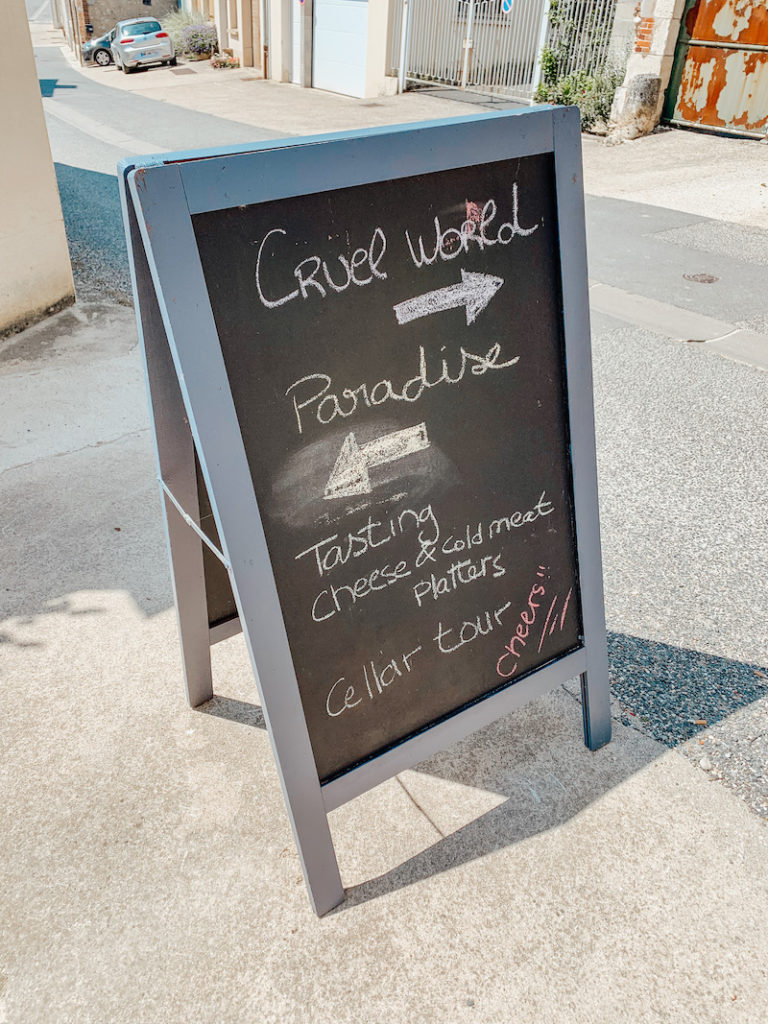 Cruel World
Paradise
Tasting
Cheese & cold meat
platters
Cellar tour
cheers!!